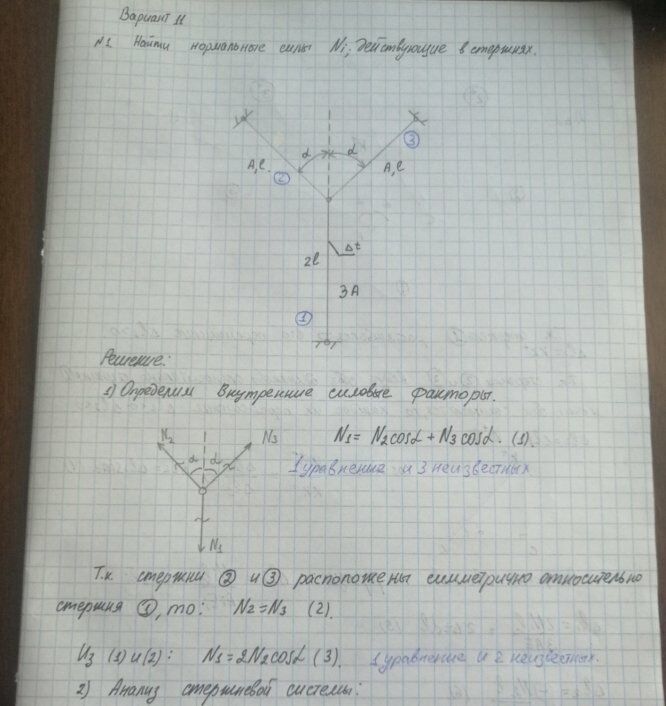 Вариант 11
N1. Найти нормальные силы Ni, действующие в стержнях.
α α
3
A, l
2
A, l
Δt
2l
3A
1
Решение:
1) Определим внутренние силовые факторы.
N2 N3
α α
N1 = N2cosα + N3cosα. (1).
1 уравнение и 3 неизвестных
N1
Т.к. стержни 2 и 3 расположены симметрично относительно
стержня 1, то: N2 = N3 (2).
Из (1) и (2): N1 = 2N2cosα (3). 1 уравнение и 2 неизвестных.
2) Анализ стержневой системы: